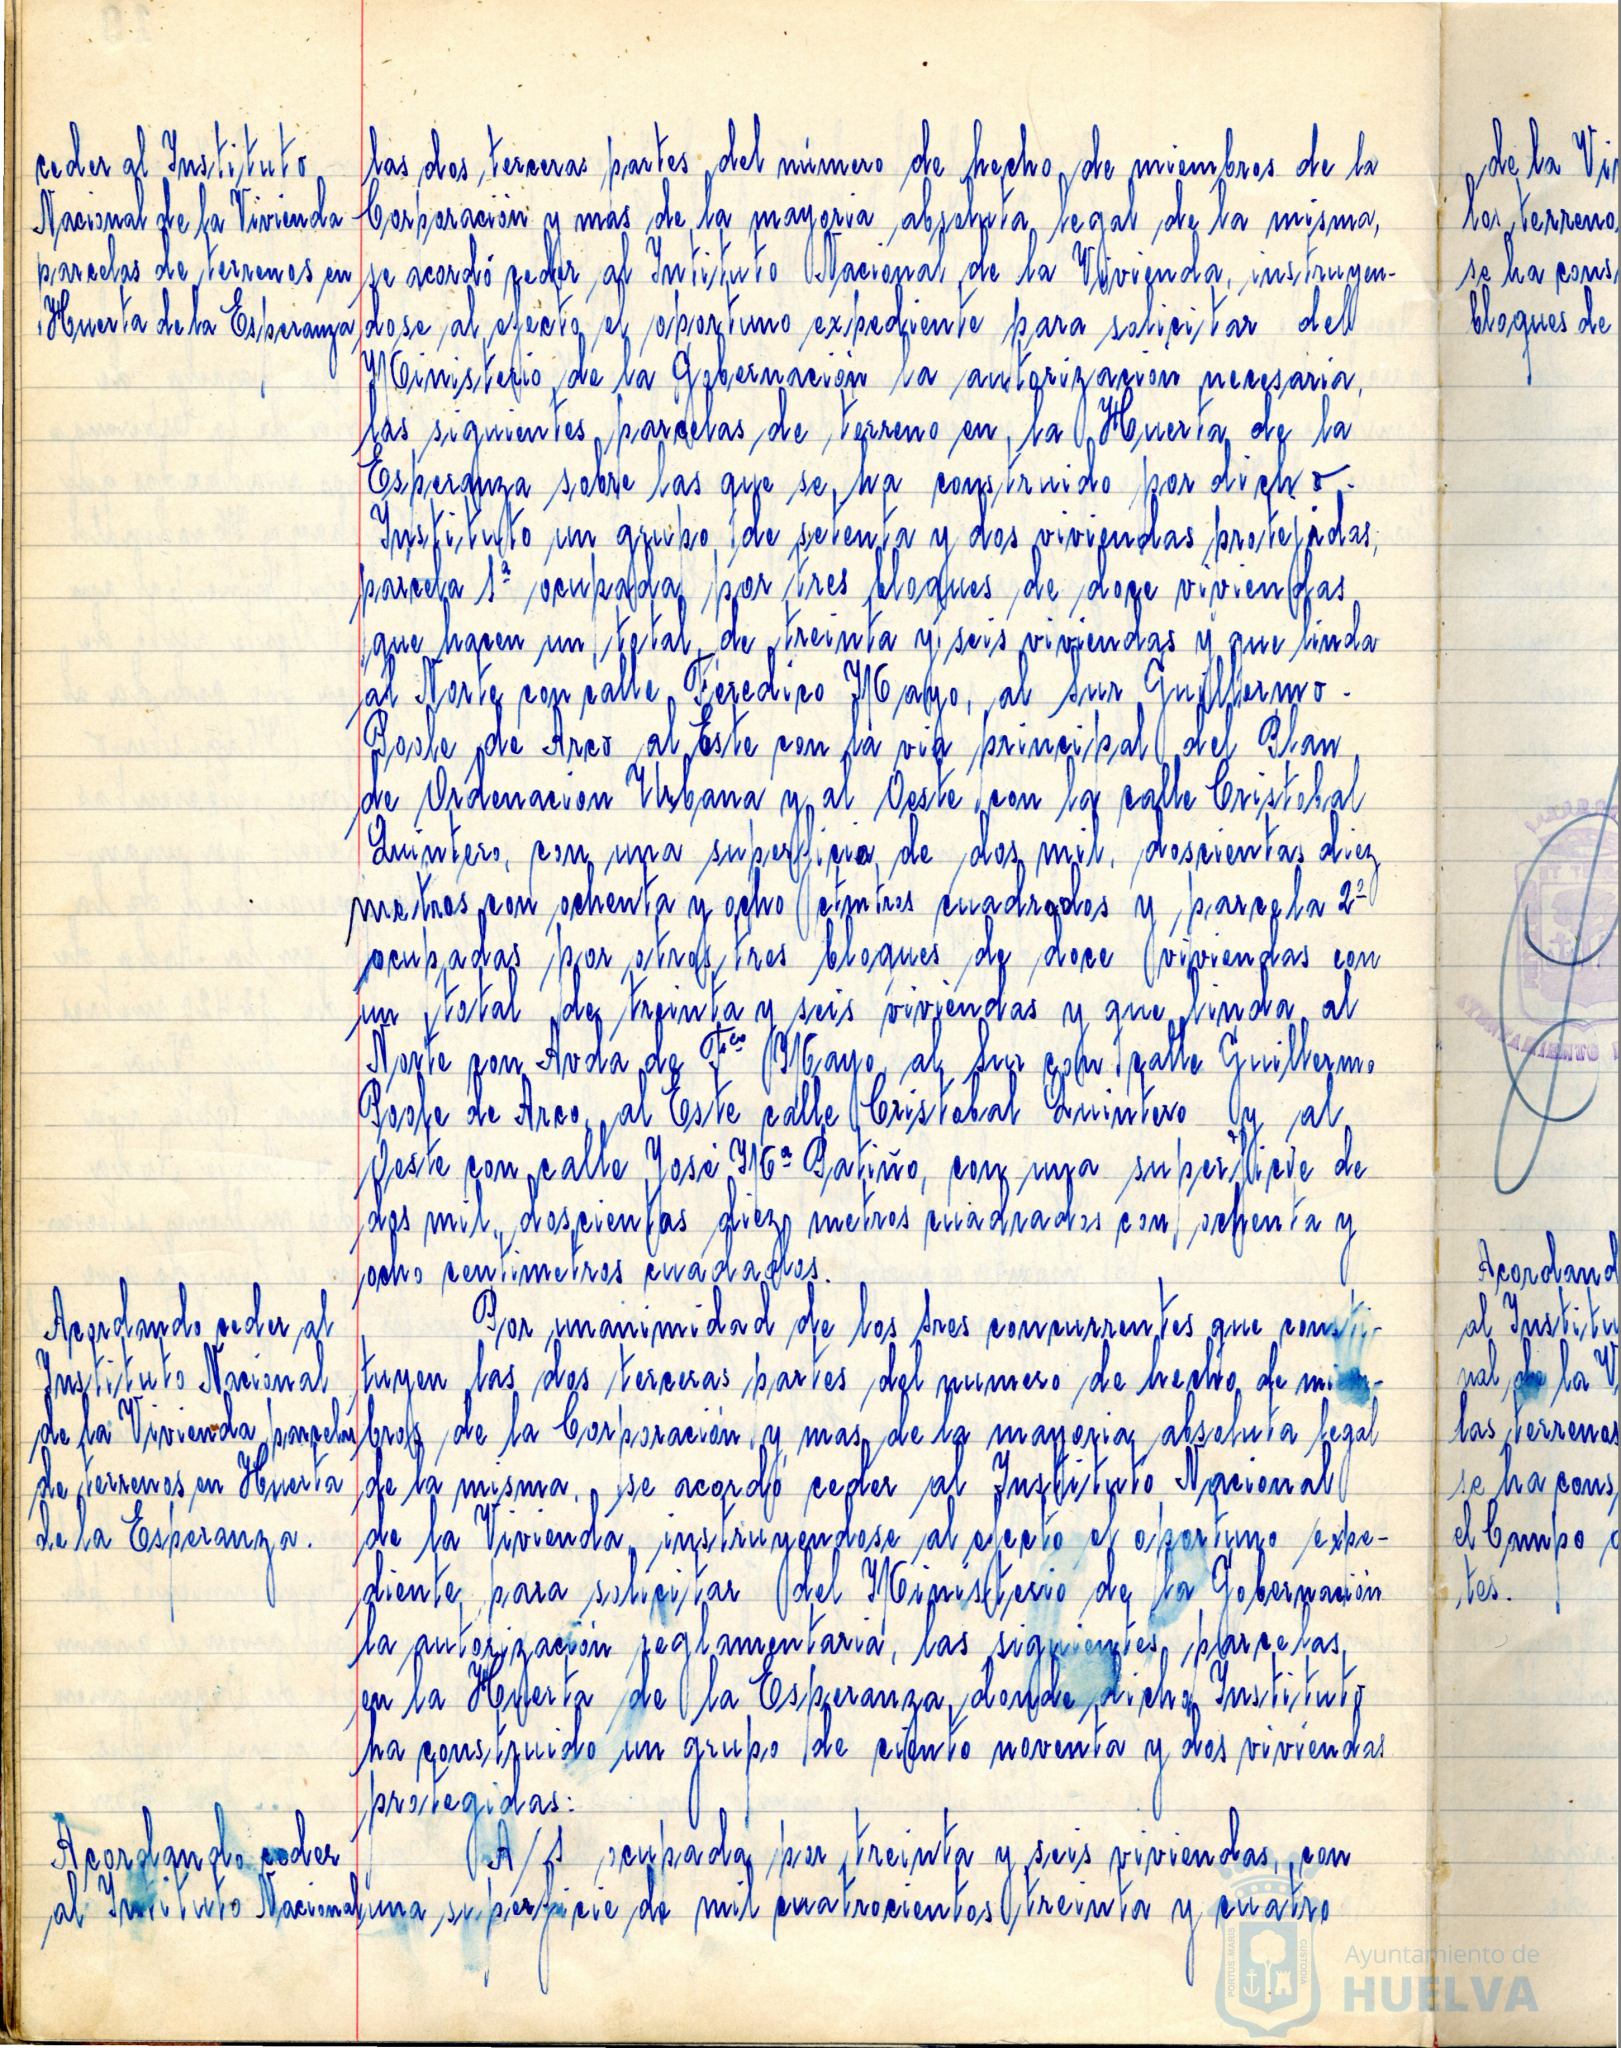 ceder al Instituto
Nacional de la Vivienda
parcelas de terrenos en
Huerta de la Esperanza
las dos terceras partes del número de hecho de miembros de la
Corporación y mas de la mayoria absoluta legal de la misma,
se acordó ceder al Intituto Nacional de la Vivienda, instruyen-
dose al efecto el oportuno expediente para solicitar del
Ministerio de la Gobernación la autorización necesaria,
las siguientes parcelas de terreno en la Huerta de la
Esperanza sobre las que se ha construido por dicho
Instituto un grupo de setenta y dos viviendas protegidas;
parcela 1ª ocupada por tres bloques de doce viviendas
que hacen un total de treinta y seis viviendas y que linda
al Norte con calle Feredico Mayo, al sur Guillermo
Poole de Arco al Este con la via principal del Plan
de Ordenación Urbana y al Oeste con la calle Cristobal
Quintero, con una superficie de dos mil, doscientas diez
metros con ochenta y ocho ctmtros cuadrados y parcela 2ª
ocupadas por otros tres bloques de doce viviendas con
un total de treinta y seis viviendas y que linda al
Norte con Avda de Fco Mayo al Sur con calle Guillermo
Poole de Arco, al Este calle Cristobal Quintero y al
Oeste con calle José Mª Patiño, con una superficie de
dos mil, doscientas diez metros cuadrados con ochenta y
ocho centimetros cuadados.
Acordando ceder al
Instituto Nacional
de la Vivienda parcelas
de terrenos en Huerta
de la Esperanza.
Por unanimidad de los Sres concurrentes que consti-
tuyen las dos terceras partes del numero de hecho de miem-
bros de la Corporación y mas de la mayoria absoluta legal
de la misma, se acordó ceder al Instituto Nacional
de la Vivienda, instruyendose al efecto el oportuno expe-
diente para solicitar del Ministerio de la Gobernación
la autorización reglamentaria, las siguientes parcelas
en la Huerta de la Esperanza donde dicho Instituto
ha construido un grupo de ciento noventa y dos viviendas
protegidas:
Acordando ceder
al Instituto Nacional
A/1 ocupada por treinta y seis viviendas, con
una superficie de mil cuatrocientos treinta y cuatro
de la Vi
los terreno
se ha cons
bloques de
Acordand
al Institu
nal de la V
las terrenos
se ha cons
el Campo
tes.
PORTUS MARIS
CUSTODIA
Ayuntamiento de
HUELVA